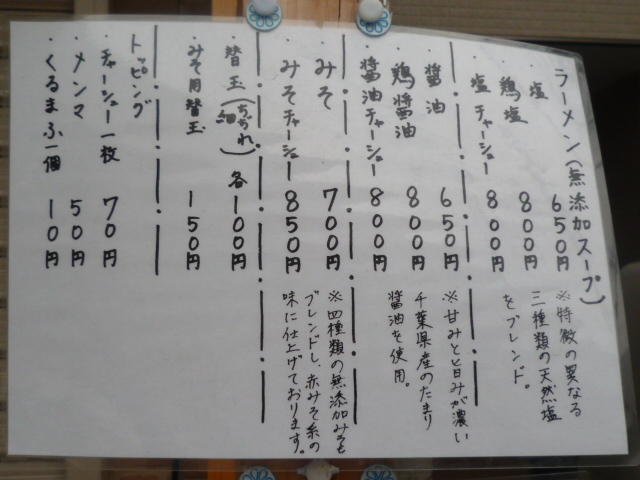 ラーメン(無添加スープ)
・塩 650円
・鶏塩 800円
・塩チャーシュー 800円
※特徴の異なる
三種類の天然塩
をブレンド。
・醤油 650円
・鶏醤油 800円
・醤油チャーシュー 800円
※甘みと旨みが濃い
千葉県産のたまり
醤油を使用。
・みそ 700円
・みそチャーシュー 850円
※四種類の無添加みそを
ブレンドし、赤みそ系の
味に仕上げております。
・替玉(ちぢれ 細) 各100円
・みそ用替玉 150円
トッピング
・チャーシュー一枚 70円
・メンマ 50円
・くるまふ一個 10円